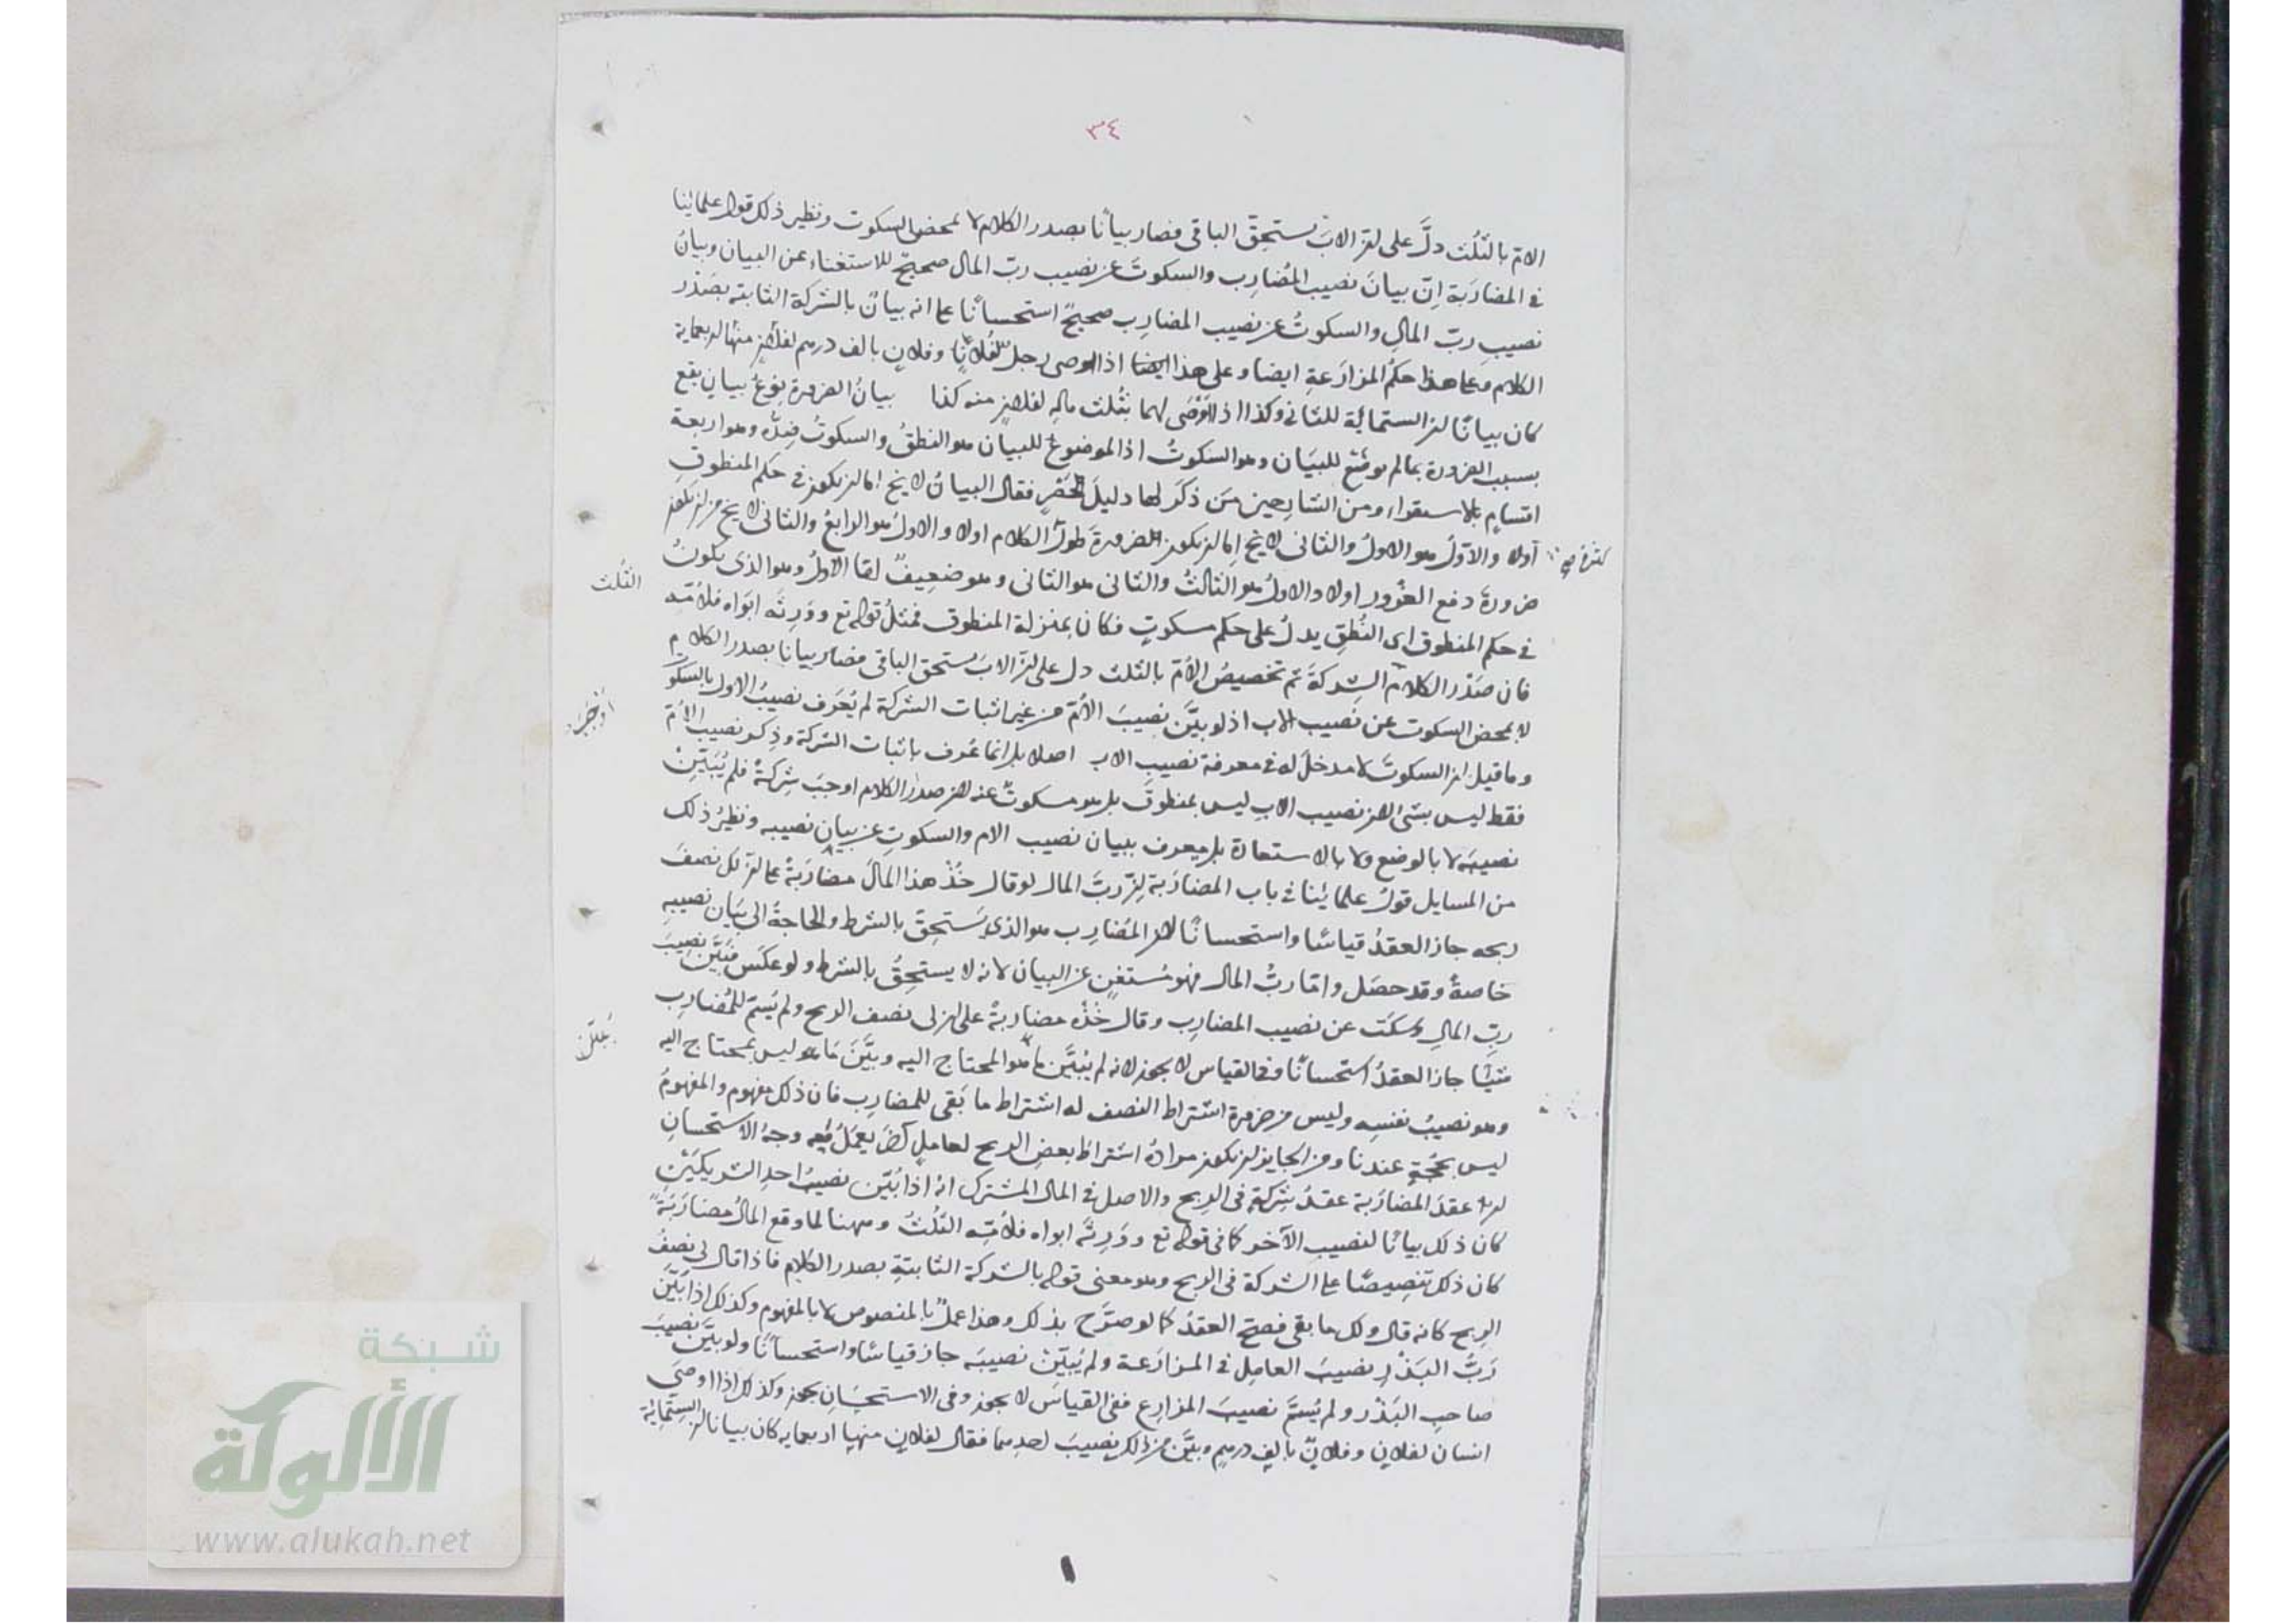 ٣٤
الامّ بالثلث دلَّ على ان الابَ يستحِقّ الباقى فصار بيانًا بصدر الكلام لا بمحض السكوت ونظير ذلك قول علمائنا
فى المضارَبة اِنّ بيانَ نصيب المُضارِب والسكوتَ عن نصيب ربّ المال صحيحٌ للاستغناء عن البيان وبيانُ
نصيبِ ربّ المالِ والسكوتُ عن نصيب المضارِب صحيحٌ استحسانًا على انه بيانٌ بالشركة الثابتة بصَدْر
الكلام وعلى هذا حكمُ المزارَعةِ ايضا وعلى هذا اذا اوصى رجل لفُلانٍ وفلانٍ بالف درهم لفلانٍ منها اربعماية
كان بيانًا ان الستمائة للثانى وكذا اذا اَوْصَى لهما بثُلث مالِهِ لفلانٍ منه كذا بيانُ الضرورة نوعُ بيانٍ يقع
بسبب الضرورة بما لم يوضَع للبيَان وهو السكوتُ اذ الموضوعُ للبيان هو النطقُ والسكوتُ ضِدُّه وهو اربعة
اقسامٍ بالاستقراء ومن الشارحين مَن ذكَر لها دليلَ الحَصْرِ فقال البيانُ لا يخ اما ان يكون فى حكم المنطوقِ
اَولا والاوّلُ هو الاولُ والثانى لا يخ اِما ان يكون لضرورةَ طولُ الكلام اولا والاولُ هو الرابعُ والثانى لا يخ من ان يكون
ضرورةَ دفع الغُرُورِ اولا والاولُ هو الثالثُ والثانى هو الثانى وهو ضعيفٌ امّا الاولُ وهو الذى يكونُ
فى حكم المنطوق اى النُطق يدلُ على حكم مسكوتٍ فكان بمنزلة المنطوق فمثلُ قوله تع ووَرِثَه ابَواه فلامّه
الثلث
فان صَدْرَ الكلام الشركةَ ثم تخصيصُ الاُمّ بالثلث دل على انّ الابَ مستحق الباقى فصار بيانا بصدر الكلام
لا بمحض السكوت عن نصيب الاب اذ لو بيَّن نصيبَ الامّ من غير اثبات الشركة لم يُعرَف نصيبُ الاول بالسكوت
وما قيل ان السكوتَ لا مدخلَ له فى معرفة نصيبِ الاب اصلا بل انما عُرف باثبات الشركة وذِكر نصيب الاُمّ
فقط ليس بشئ لان نصيب الابِ ليس بمنطوقٍ بل هو مسكوتٌ عنه لان صدرَ الكلام اوجبَ شِركةً فلم يُبَيِّنْ
نصيبَه لا بالوضع ولا بالاستعارة بل يعرف ببيان نصيب الام والسكوتِ عن بيانِ نصيبه ونظيرُ ذلك
من المسايل قولُ علمائنا فى باب المضارَبة انّ ربَّ المال لو قال خُذْ هذا المالَ مضارَبةً على ان لك نصفَ
ربحه جاز العقدُ قياسًا واستحسانًا لان المُضارِب هو الذى يَستحِقّ بالشرط والحاجةُ الى بَيان نصيبه
خاصةً وقد حصَل وامّا ربُّ المال فهو مُستغنٍ عن البيان لانه لا يستحِقُّ بالشرط ولو عكَس فبيَّن نصيبَ
ربِّ المالِ وسكَت عن نصيب المضارِب وقال خُذْه مضاربةً على ان لى نصف الربح ولم يُسَمّ للمُضارِب
شيئًا جاز العقدُ استحسانًا وفى القياس لا يجوز لانه لم يُبيَّن ما هو المحتاج اليه وبيَّنَ مَا هو ليس بمحتاج اليه
وهو نصيبُ نفسِه وليس من ضرورة اشتراط النصف له اشتراط ما بَقى للمضارِب فان ذلك مفهوم والمفهومُ
ليس بحُجةٍ عندنا ومن الجايز ان يكون مرادُه اشتراطَ بعض الربح لعاملٍ آخَرَ يعمَلُ مَعه وجهُ الاستحسانِ
انّ عقدَ المضارَبة عقدُ شركةٍ فى الربح والاصل فى المال المشترك انه اذا بُيِّن نصيبُ احدِ الشريكَيْنِ
كان ذلك بيانًا لنصيب الآخر كما فى قوله تع ووَرِثَه ابواه فلاُمّه الثُلُثُ وههنا لما وقع المالُ مضارَبةً
كان ذلك تنصيصًا على الشركة فى الربح وهو معنى قوله بالشركة الثابتةِ بصدر الكلام فاذا قال لى نصفُ
الربح كانه قال ولك ما بقى فصحّ العقدُ كما لو صرَّح بذلك وهذا عملٌ بالمنصوص لا بالمفهوم وكذلك اذا بَيَّنَ
رَبُّ البَذْرِ نصيبَ العامِل فى المزارَعة ولم يُبيِّنْ نصيبَه جاز قياسًا واستحسانًا ولو بيَّن نصيبَ
صاحبِ البَذْر ولم يُسمّ نصيبَ المزارِع ففى القياس لا يجوز وفى الاستحسَان يجوز وكذلك اذا اوصَى
انسان لفلانٍ وفلانٍ بالفِ درهمٍ وبيَّن من ذلك نصيبَ احدهما فقال لفلانٍ منها اربعمايه كان بيانا ان الستمائة
شبكة
الألوكة
www.alukah.net